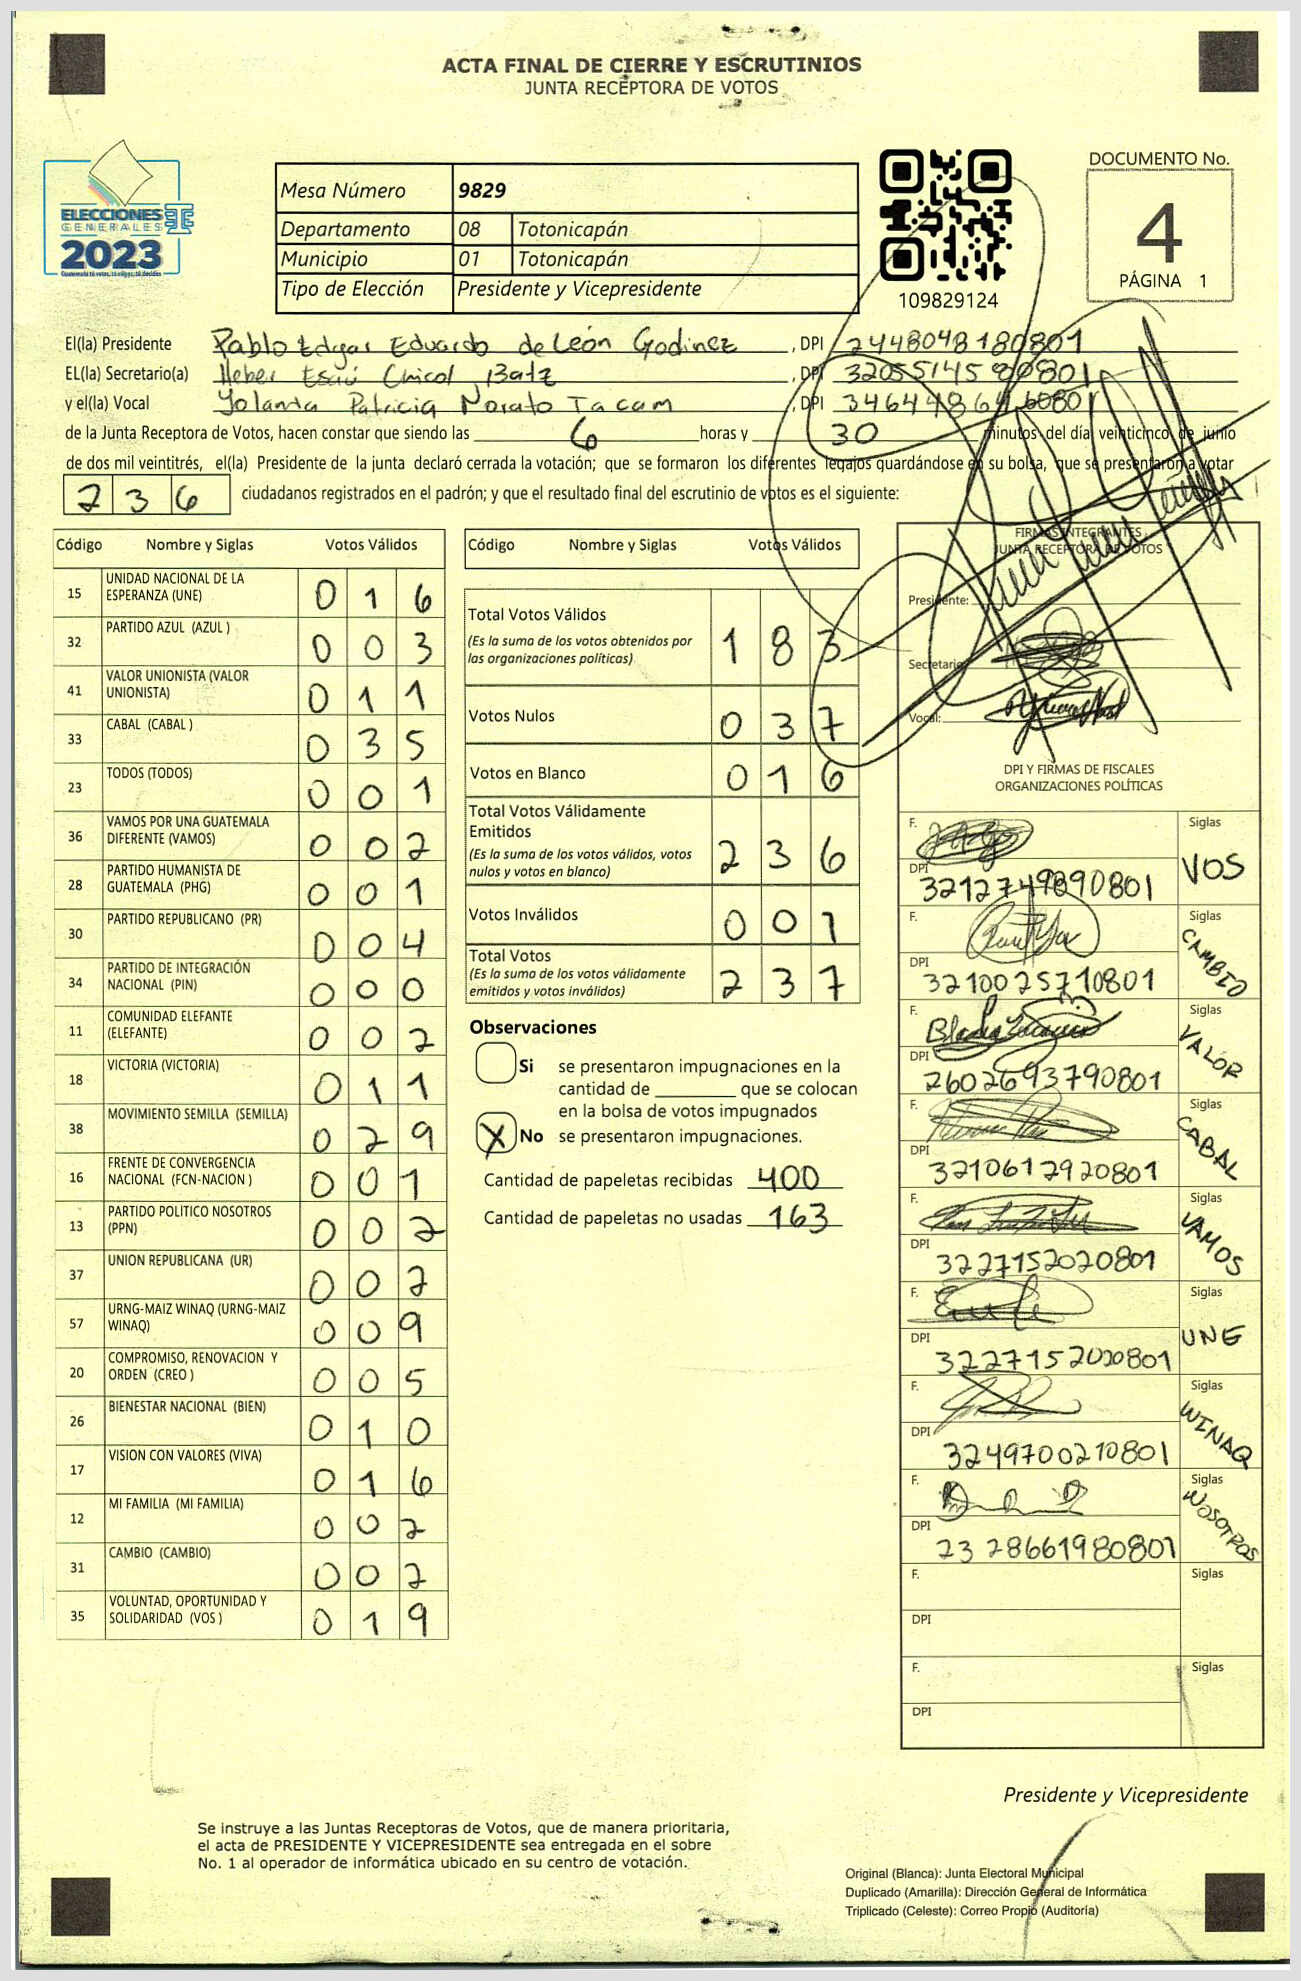 ACTA FINAL DE CIERRE Y ESCRUTINIOS
JUNTA RECEPTORA DE VOTOS
ELECCIONES
GENERALES
2023
Guatemala tú votas, tú eliges, tú decides
Mesa Número 9829
Departamento 08 Totonicapán
Municipio 01 Totonicapán
Tipo de Elección Presidente y Vicepresidente
109829124
DOCUMENTO No.
4
PÁGINA 1
El(la) Presidente Pablo Edgar Eduardo de León Godinez , DPI 2448048180801
EL(la) Secretario(a) Heber Esaú Chicol Batz , DPI 3205514580801
y el(la) Vocal Yolanda Patricia Norato Tacam , DPI
de la Junta Receptora de Votos, hacen constar que siendo las 6 horas y 30 minutos del día veinticinco de junio
de dos mil veintitrés, el(la) Presidente de la junta declaró cerrada la votación; que se formaron los diferentes legajos guardándose en su bolsa, que se presentaron a votar
236 ciudadanos registrados en el padrón; y que el resultado final del escrutinio de votos es el siguiente:
Código Nombre y Siglas Votos Válidos
15 UNIDAD NACIONAL DE LA ESPERANZA (UNE) 016
32 PARTIDO AZUL (AZUL ) 003
41 VALOR UNIONISTA (VALOR UNIONISTA) 011
33 CABAL (CABAL ) 035
23 TODOS (TODOS) 001
36 VAMOS POR UNA GUATEMALA DIFERENTE (VAMOS) 002
28 PARTIDO HUMANISTA DE GUATEMALA (PHG) 001
30 PARTIDO REPUBLICANO (PR) 004
34 PARTIDO DE INTEGRACIÓN NACIONAL (PIN) 000
11 COMUNIDAD ELEFANTE (ELEFANTE) 002
18 VICTORIA (VICTORIA) 011
38 MOVIMIENTO SEMILLA (SEMILLA) 029
16 FRENTE DE CONVERGENCIA NACIONAL (FCN-NACION ) 001
13 PARTIDO POLITICO NOSOTROS (PPN) 002
37 UNION REPUBLICANA (UR) 002
57 URNG-MAIZ WINAQ (URNG-MAIZ WINAQ) 009
20 COMPROMISO, RENOVACION Y ORDEN (CREO ) 005
26 BIENESTAR NACIONAL (BIEN) 010
17 VISION CON VALORES (VIVA) 016
12 MI FAMILIA (MI FAMILIA) 002
31 CAMBIO (CAMBIO) 002
35 VOLUNTAD, OPORTUNIDAD Y SOLIDARIDAD (VOS ) 019
Código Nombre y Siglas Votos Válidos
Total Votos Válidos 183
(Es la suma de los votos obtenidos por
las organizaciones políticas)
Votos Nulos 037
Votos en Blanco 016
Total Votos Válidamente
Emitidos 236
(Es la suma de los votos válidos, votos
nulos y votos en blanco)
Votos Inválidos 001
Total Votos 237
(Es la suma de los votos válidamente
emitidos y votos inválidos)
Observaciones
Si se presentaron impugnaciones en la
cantidad de ________ que se colocan
en la bolsa de votos impugnados
X No se presentaron impugnaciones.
Cantidad de papeletas recibidas 400
Cantidad de papeletas no usadas 163
FIRMAS INTEGRANTES
JUNTA RECEPTORA DE VOTOS
Presidente:
Secretario:
Vocal:
DPI Y FIRMAS DE FISCALES
ORGANIZACIONES POLÍTICAS
F. Siglas VOS
DPI 3212749890801
F. Siglas CAMBIO
DPI 3210025710801
F. Siglas VALOR
DPI 2602693790801
F. Siglas CABAL
DPI 3210612920801
F. Siglas VAMOS
DPI 3227152020801
F. Siglas UNE
DPI 3227152020801
F. Siglas WINAQ
DPI 3249700210801
F. Siglas NOSOTROS
DPI 2328661980801
F. Siglas
DPI
F. Siglas
DPI
Presidente y Vicepresidente
Se instruye a las Juntas Receptoras de Votos, que de manera prioritaria,
el acta de PRESIDENTE Y VICEPRESIDENTE sea entregada en el sobre
No. 1 al operador de informática ubicado en su centro de votación.
Original (Blanca): Junta Electoral Municipal
Duplicado (Amarilla): Dirección General de Informática
Triplicado (Celeste): Correo Propio (Auditoría)